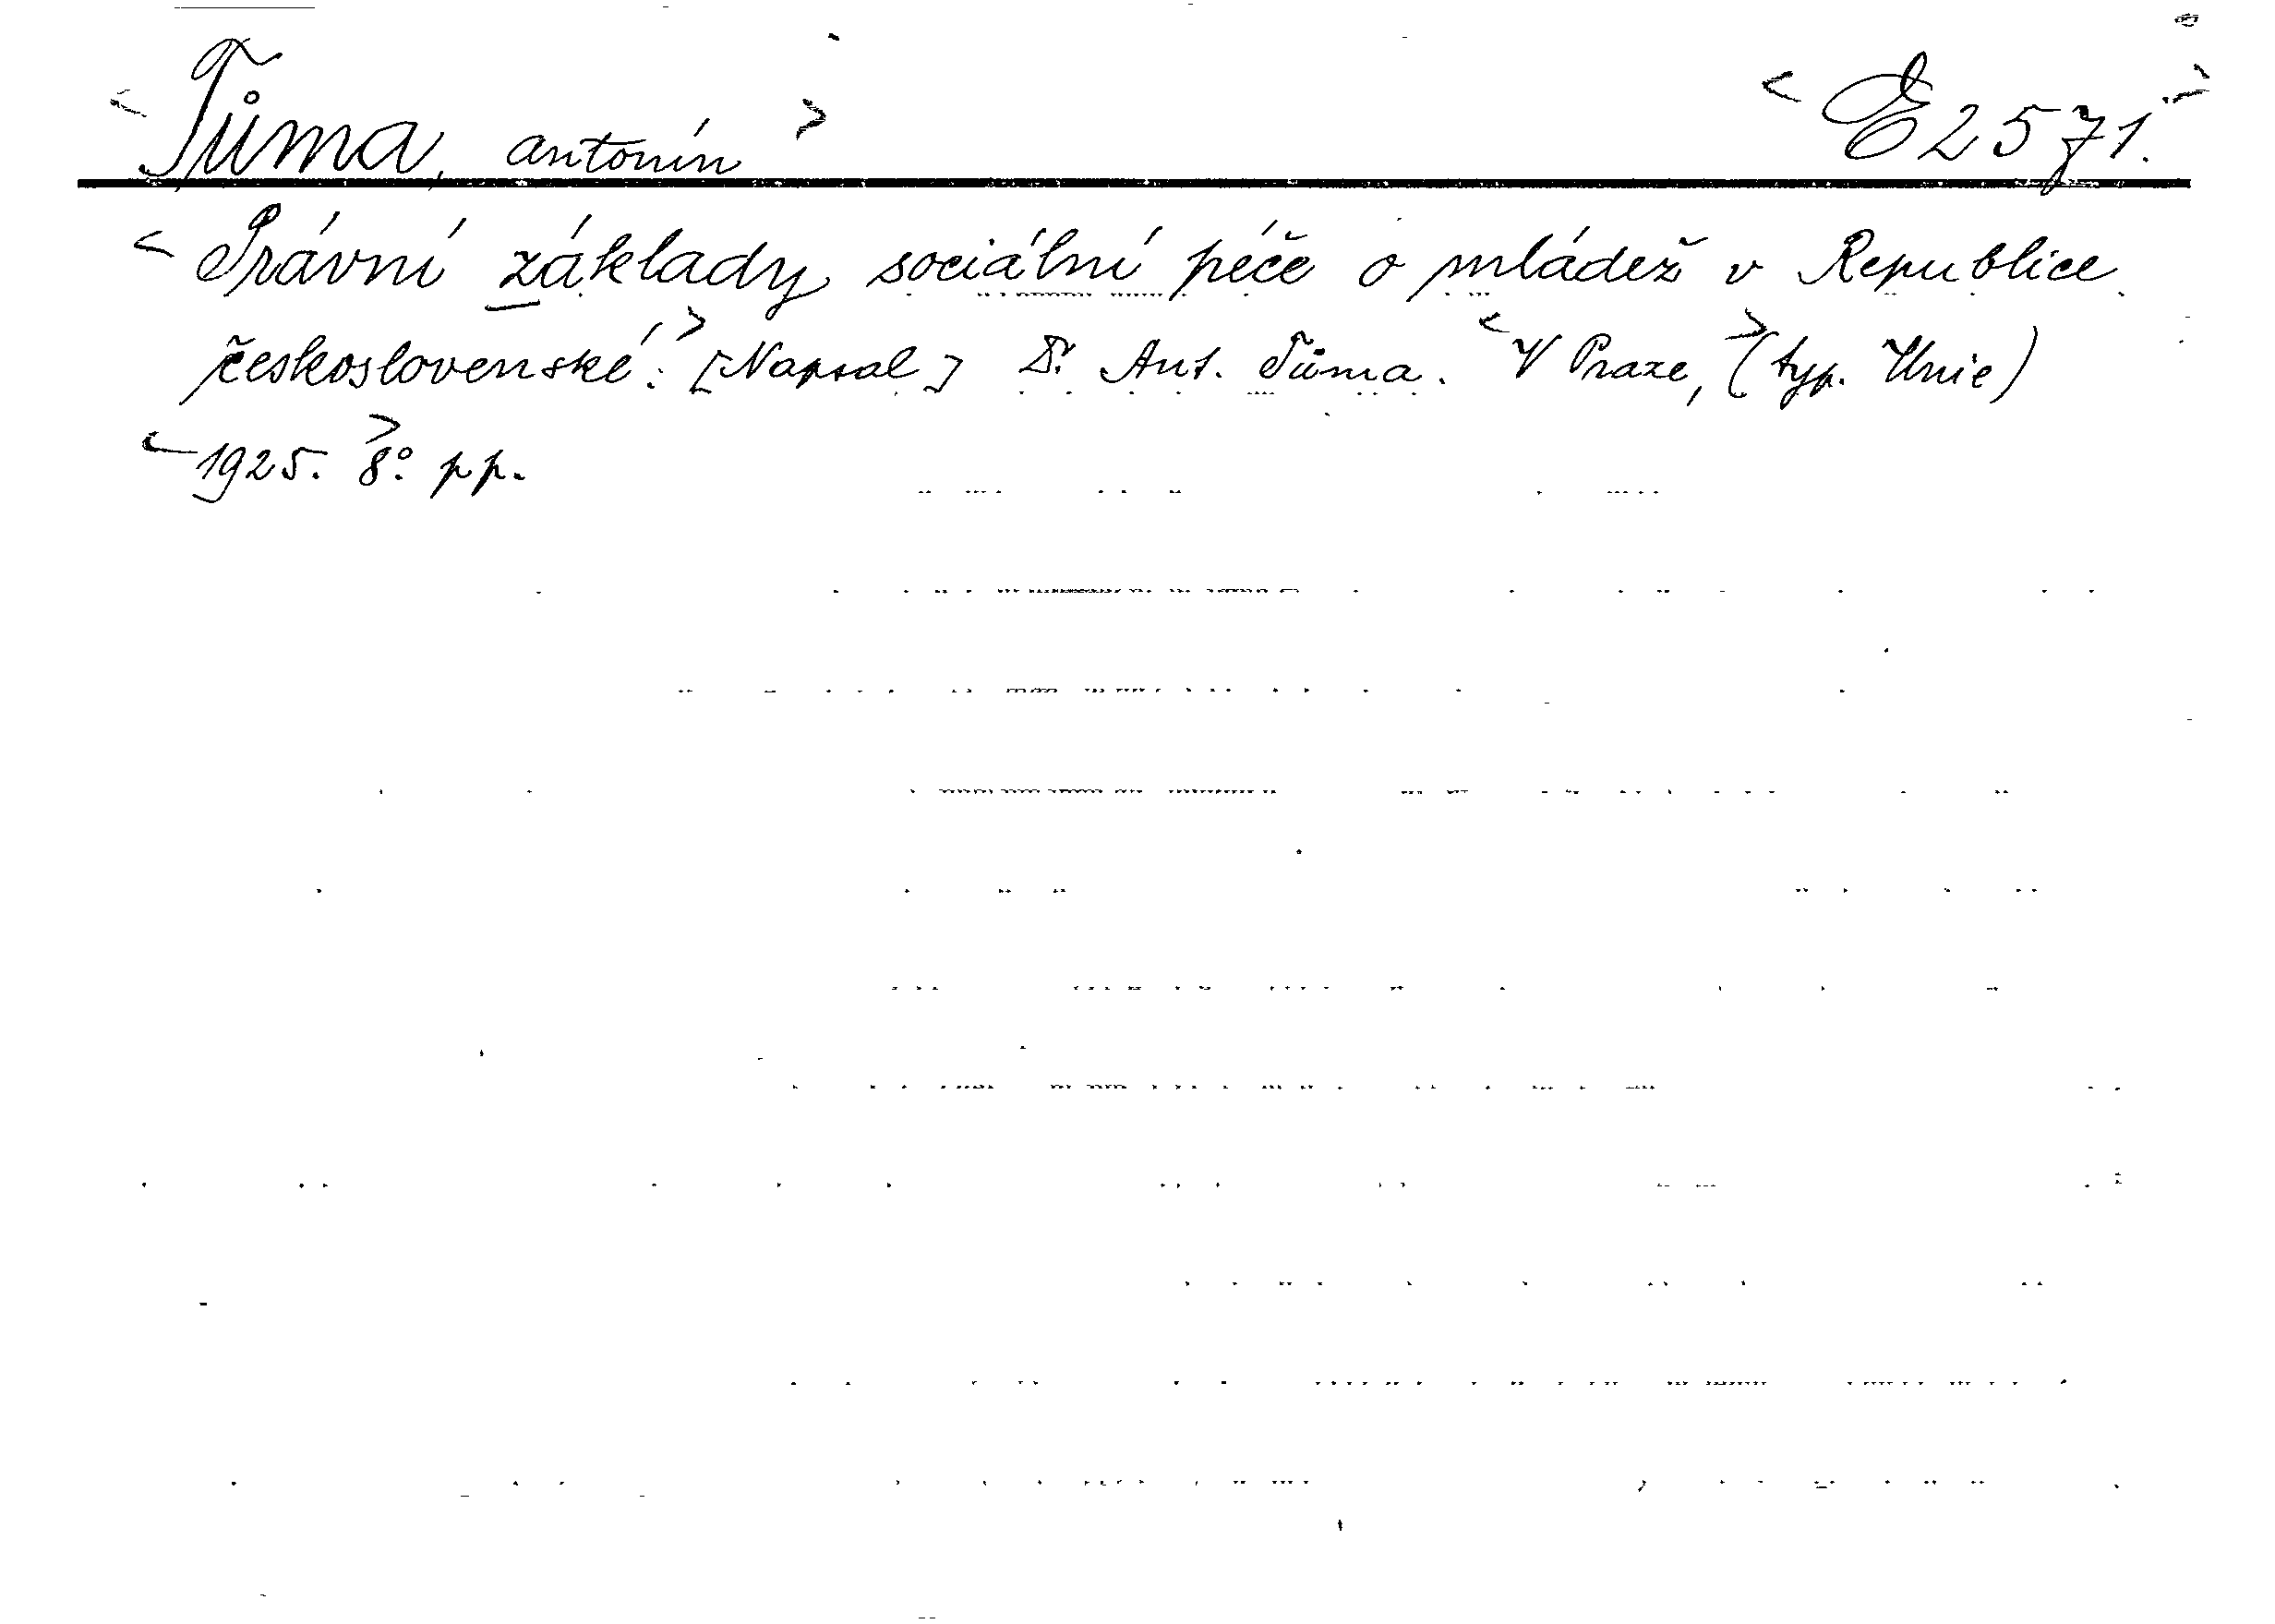 <Tůma, Antonín> <E 2571.>
<Právní základy sociální péče o mládež v Republice
československé.> [Napsal] Dr. Ant. Tůma. <V Praze,> (typ. Unie)
<1925.> 8°. pp.